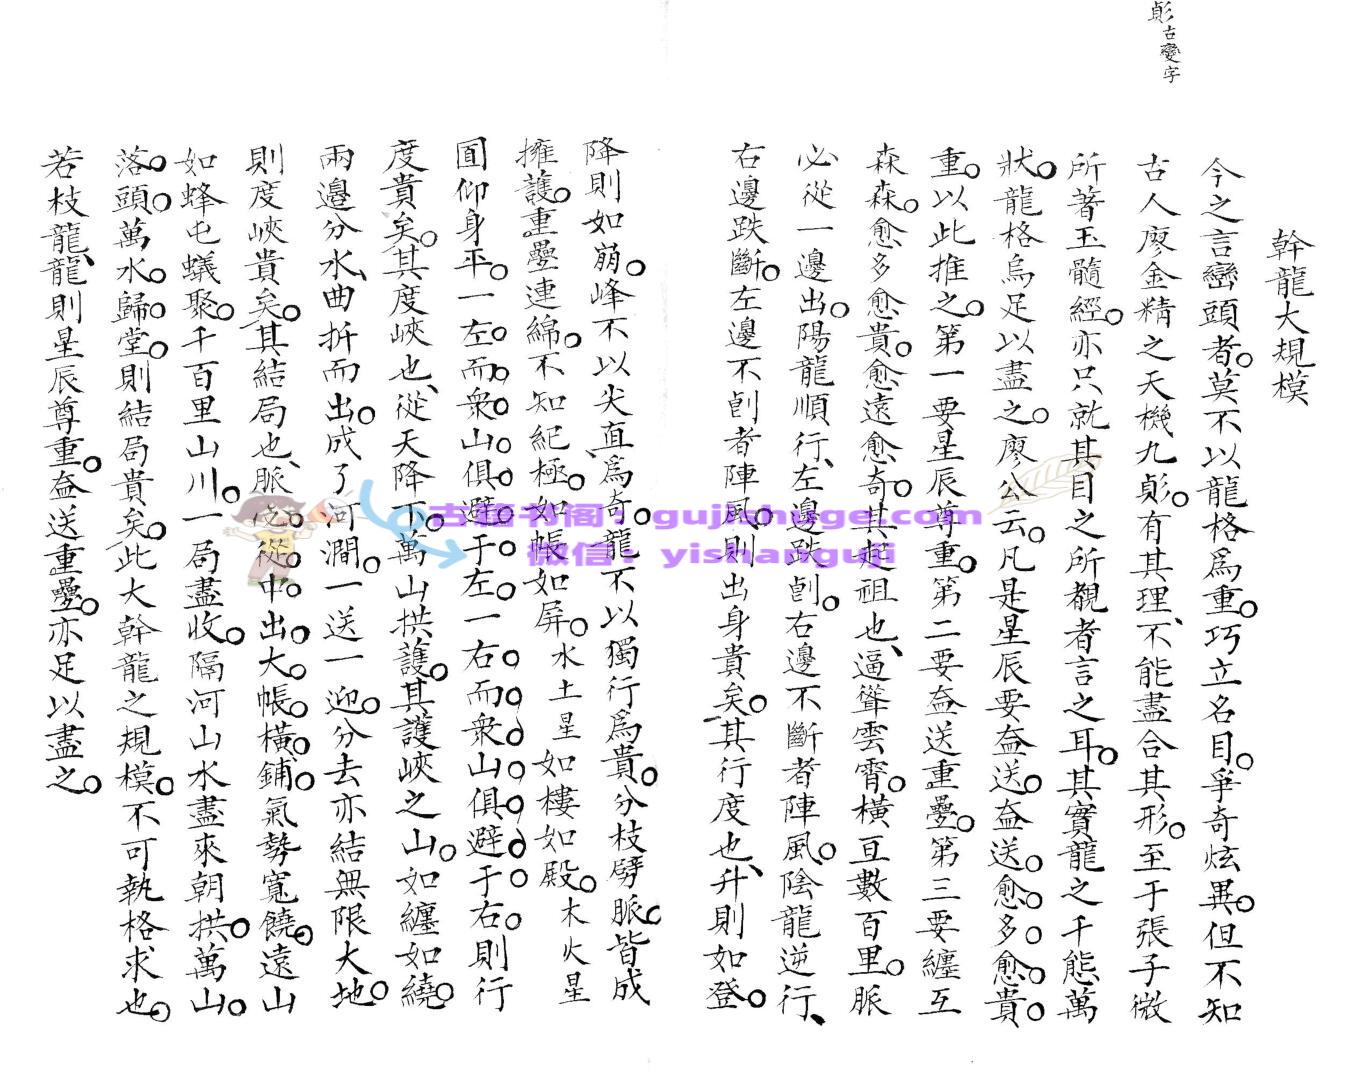 䫆古變字
幹龍大規模
今之言巒頭者。莫不以龍格爲重。巧立名目。爭奇炫異。但不知
古人廖金精之天機九䫆。有其理、不能盡合其形。至于張子微
所著玉髓經。亦只就其目之所覩者言之耳。其實龍之千態萬
狀。龍格烏足以盡之。廖公云。凡是星辰要夽送。夽送。愈。多。愈。貴。
重。以此推之。第一要星辰尊重。第二要夽送重疊。第三要纏互
森森。愈多愈貴。愈遠愈奇。其起祖也、逼聳雲霄。橫亘數百里。脈
必從一邊出。陽龍順行、左邊跌剒。右邊不斷者陣風。陰龍逆行、
右邊跌斷。左邊不剒者陣風。則出身貴矣。其行度也、升則如登。
降則如崩。峰不以尖直爲奇。龍不以獨行爲貴。分枝劈脈。皆成
擁護。重疊連綿。不知紀極。如帳如屏。水土星如樓如殿。木火星
圓仰身平。一左。而。衆。山。俱。避。于。左。一右。而。衆。山。俱。避。于。右。則行
度貴矣。其度峽也、從天降下。萬山拱護。其護峽之山。如纏如繞。
兩邊分水、曲折而出。成了河澗。一送一迎。分去亦結無限大地。
則度峽貴矣。其結局也、脈。從。中。出。大。帳。橫。鋪。氣勢寬饒。遠山
如蜂屯蟻聚。千百里山川。一局盡收。隔河山水盡來朝拱。萬山。
落。頭。萬水。歸。堂。則結局貴矣。此大幹龍之規模。不可執格求也。
若枝龍、龍則星辰尊重。夽送重疊。亦足以盡之。
古籍书阁：gujishuge.com
微信：yishanguji